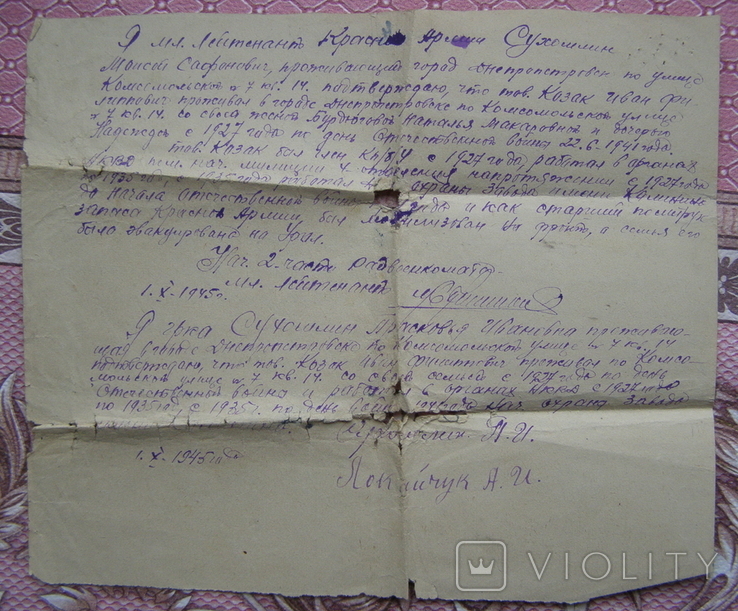 Я мл. Лейтенант Красной Армии Сухомлин
Моисей Сафонович, проживающий город Днепропетровск по улице
Комсомольской № 7 кв. 14. подтверждаю, что тов. Козак Иван Фи
липпович проживал в городе Днепропетровске по Комсомольской улице
№ 7 кв. 14. со своей женой Наталья Макаровной и дочерью
с 1927 года по день Отечественной войны 22.6.1941 года.
тов. Козак был член КП/б/У с 1927 года, работал в органах
пом. нач. милиции 4 отделения на протяжении с 1927 года
по 1935 год, с 1935 года работал охраны завода имени
до начала Отечественной войны и как старший политрук
запаса Красной Армии, был мобилизован на фронт, а семья его
была эвакуирована на Урал.
Нач. 2-части райвоенкомата
мл. Лейтенант
1.X-1945 г.
Я Сухомлин Прасковья Ивановна проживаю-
щая в городе Днепропетровске по Комсомольской улице № 7 кв. 14
подтверждаю, что тов. Козак Иван Филиппович проживал по Комсо
мольской улице № 7 кв. 14. со своей семьей с 1927 года по день
Отечественной войны и работал в органах НКВД с 1927 года
по 1935 год, с 1935 г. по день войны нач. охраны завода
Сухомлин П. И.
1.X-1945 года
Локайчук А. И.
VIOLITY